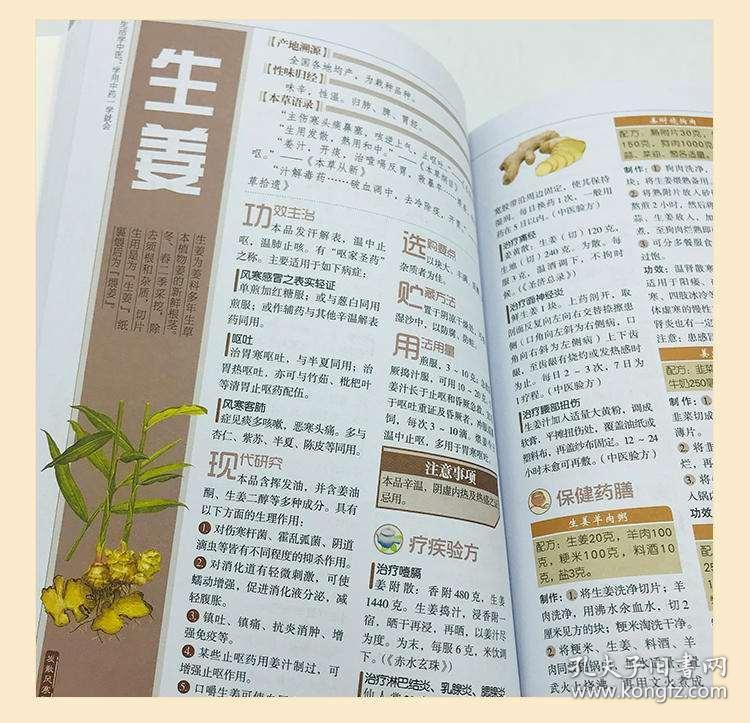 生活学中医:学用中药一学就会
生姜
生姜为姜科多年生草
本植物姜的新鲜根茎。
冬、春二季采挖,除
去须根和杂质,切片
生用是为“生姜”,纸
裹煨后为“煨姜”。
发散风寒
【产地溯源】
全国各地均产,为栽种品种。
【性味归经】
味辛,性温。归肺、脾、胃经。
【本草语录】
“主伤寒头痛鼻塞,咳逆上气,止呕吐。”
“生用发散,熟用和中。”——《本草纲目》
“姜汁,开痰,治噎嗝反胃,
呕。”——《本草从新》
“汁解毒药……破血调中,去冷除痰,开胃。”
草拾遗》
功效主治
本品发汗解表,温中止
呕,温肺止咳。有“呕家圣药”
之称。主要适用于如下病症:
风寒感冒之表实轻证
单煎加红糖服;或与葱白同用
煎服;或作辅药与其他辛温解表
药同用。
呕吐
治胃寒呕吐,与半夏同用;治
胃热呕吐,亦可与竹茹、枇杷叶
等清胃止呕药配伍。
风寒客肺
症见痰多咳嗽,恶寒头痛。多与
杏仁、紫苏、半夏、陈皮等同用。
现代研究
本品含挥发油,并含姜油
酮、生姜二醇等多种成分。具有
以下方面的生理作用:
1 对伤寒杆菌、霍乱弧菌、阴道
滴虫等皆有不同程度的抑杀作用。
2 对消化道有轻微刺激,可使
蠕动增强,促进消化液分泌,减
轻腹胀。
3 镇吐、镇痛、抗炎消肿、增
强免疫等。
4 某些止呕药用姜汁制过,可
增强止呕作用。
5 口嚼生姜可使血压
选购要点
以块大、丰满、质嫩
杂质者为佳。
贮藏方法
置于阴凉干燥处,
湿沙中,以防腐、防蛀。
用法用量
煎服,3~10克,急
厥捣汁服,可用10~20克。
姜汁长于止呕和昏厥急救,
于呕吐重证及昏厥者,冲服
饲,每次3~10滴。煨姜
温中止呕,多用于胃寒呕吐。
注意事项
本品辛温,阴虚内热及热盛之证
忌用。
疗疾验方
治疗噎嗝
姜附散:香附480克,生姜
1440克。生姜捣汁,浸香附一
宿,晒干再浸,再晒,以姜汁尽
为度。为末,每服6克,米饮调
下。(《赤水玄珠》)
治疗淋巴结炎、乳腺炎、腮腺炎
宽胶带沿周边固定,使其保持
湿润,每日换药1次,一般用
药在5日以内。(中医验方)
治疗痛经
姜黄散:生姜(切)120克,
生地(切)240克。为散。每
服3克,温酒调下,不拘时
候。(《圣济总录》)
治疗面神经炎
鲜生姜1块。上药剖开,取
剖面反复向左向右交替擦擦患
侧(口角向左斜为右侧病,口
角向右斜为左侧病)上下齿
龈,至齿龈有烧灼或发热感时
为止。每日2~3次,7日为
1疗程。(中医验方)
治疗腰部扭伤
生姜汁加入适量大黄粉,调成
软膏,平摊扭伤处,覆盖油纸或
塑料布,再盖纱布固定。12~24
小时未愈可再敷。(中医验方)
保健药膳
生姜羊肉粥
配方:生姜20克,羊肉100
克,粳米100克,料酒10
克,盐3克。
制作:1 将生姜洗净切片;羊
肉洗净,用沸水汆血水,切2
厘米见方的块;粳米淘洗干净。
2 将粳米、生姜、料酒、羊
肉同放锅内,
武火上烧沸,再用文火煮成
姜附烧狗肉
配方:熟附片30克,
150克,狗肉1000克
蒜、菜油、葱各适量。
制作:1 狗肉洗净,
块;将生姜煨熟备用。
2 将熟附片放入砂
熬煎2小时,然后将
蒜、生姜放入,加
炖,至狗肉烂熟即
3 可分多餐服食
饱。
功效:温肾散寒
适用于阳痿、
寒、四肢冰冷等
体虚寒的慢性
肾炎也有一定
注意:患感冒
配方:韭菜
牛奶250毫
制作:1
韭菜切成
薄片。
2 将
烂,再
3 将
人锅
功效
孔夫子旧书网
www.kongfz.com